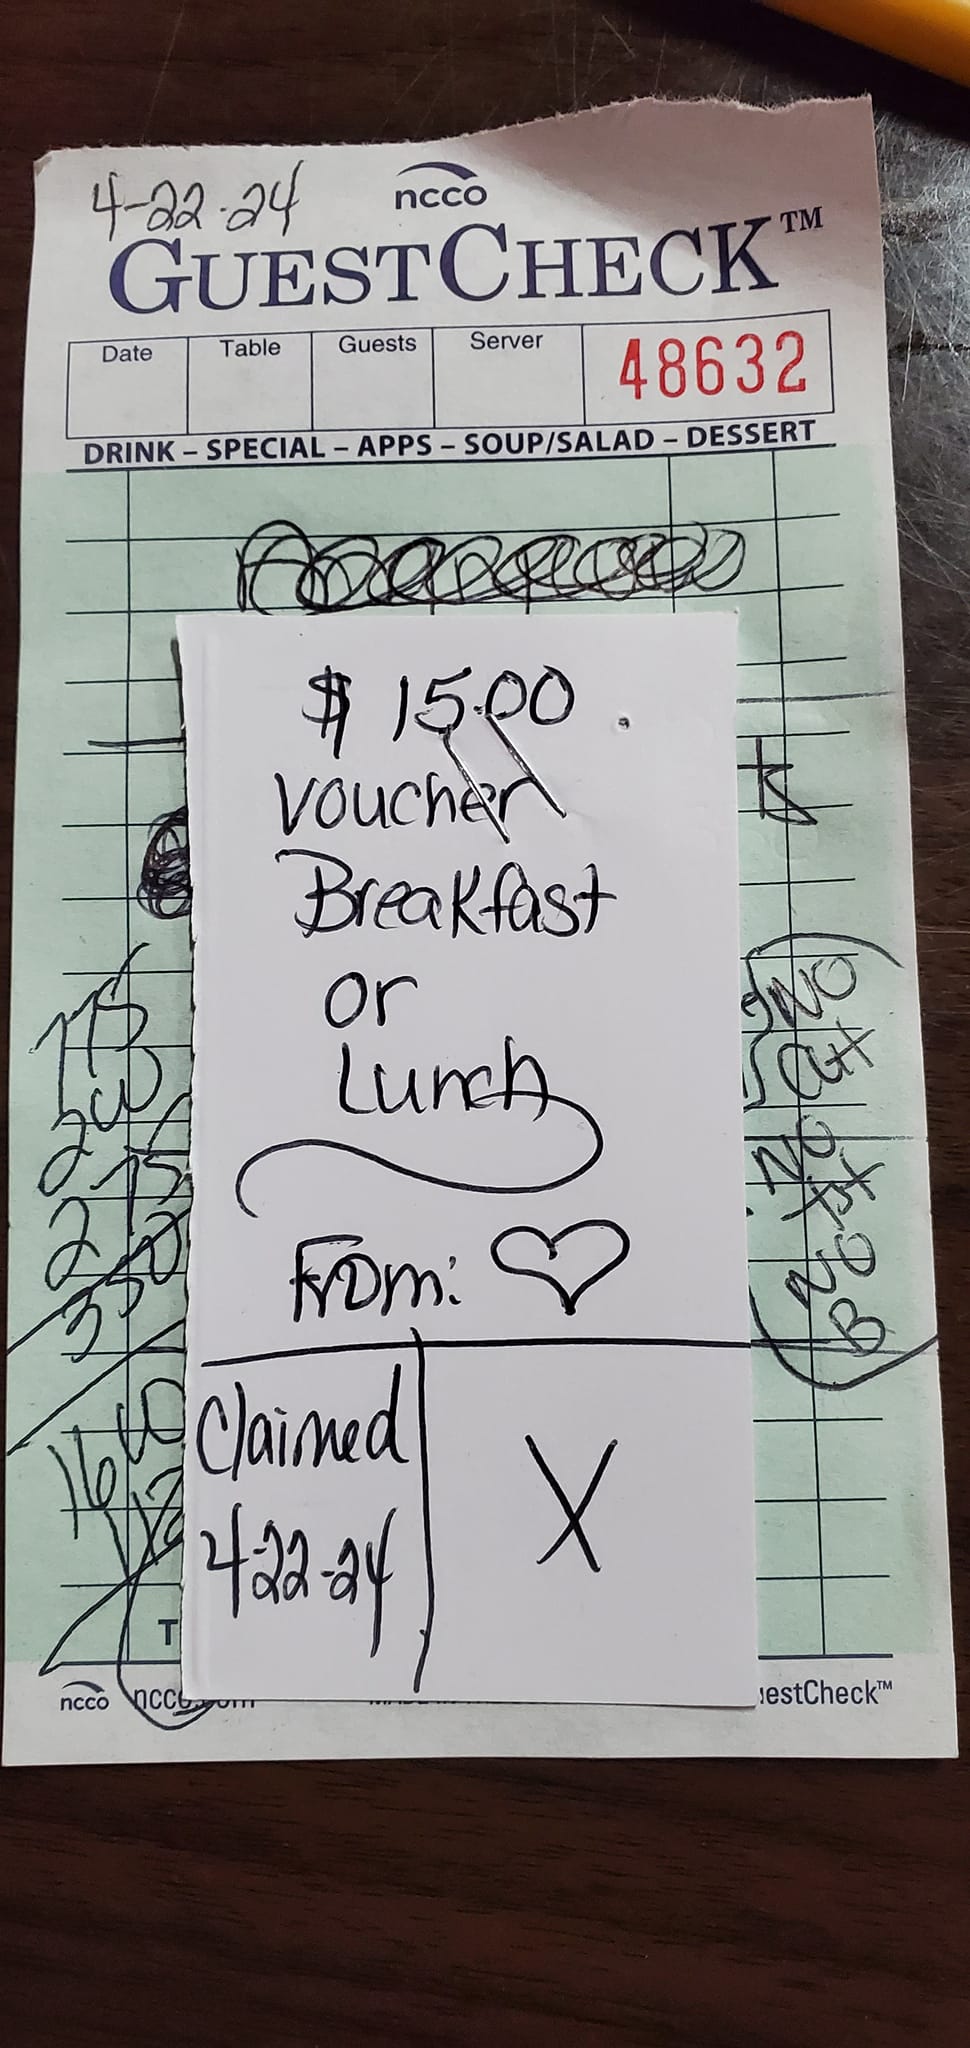 4-22-24
ncco
GUESTCHECK™
Date Table Guests Server 48632
DRINK – SPECIAL – APPS – SOUP/SALAD – DESSERT
$ 15.00
Voucher
Breakfast
or
Lunch
From: ♡
Claimed X
4-22-24
NO
NO
NO
B
2 75
350
16
T
ncco
estCheck™